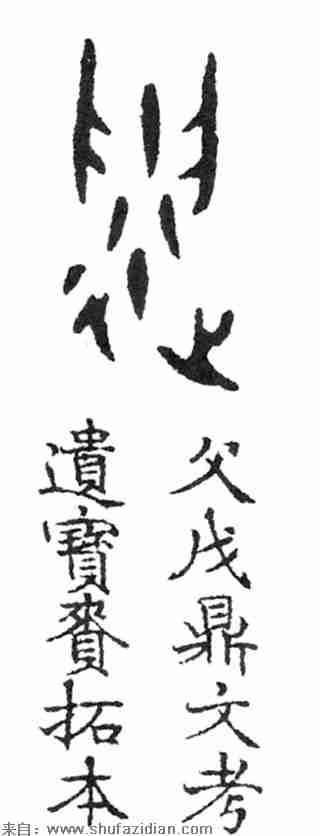 父戊鼎文考
遺寶賚拓本
来自：www.shufazidian.com